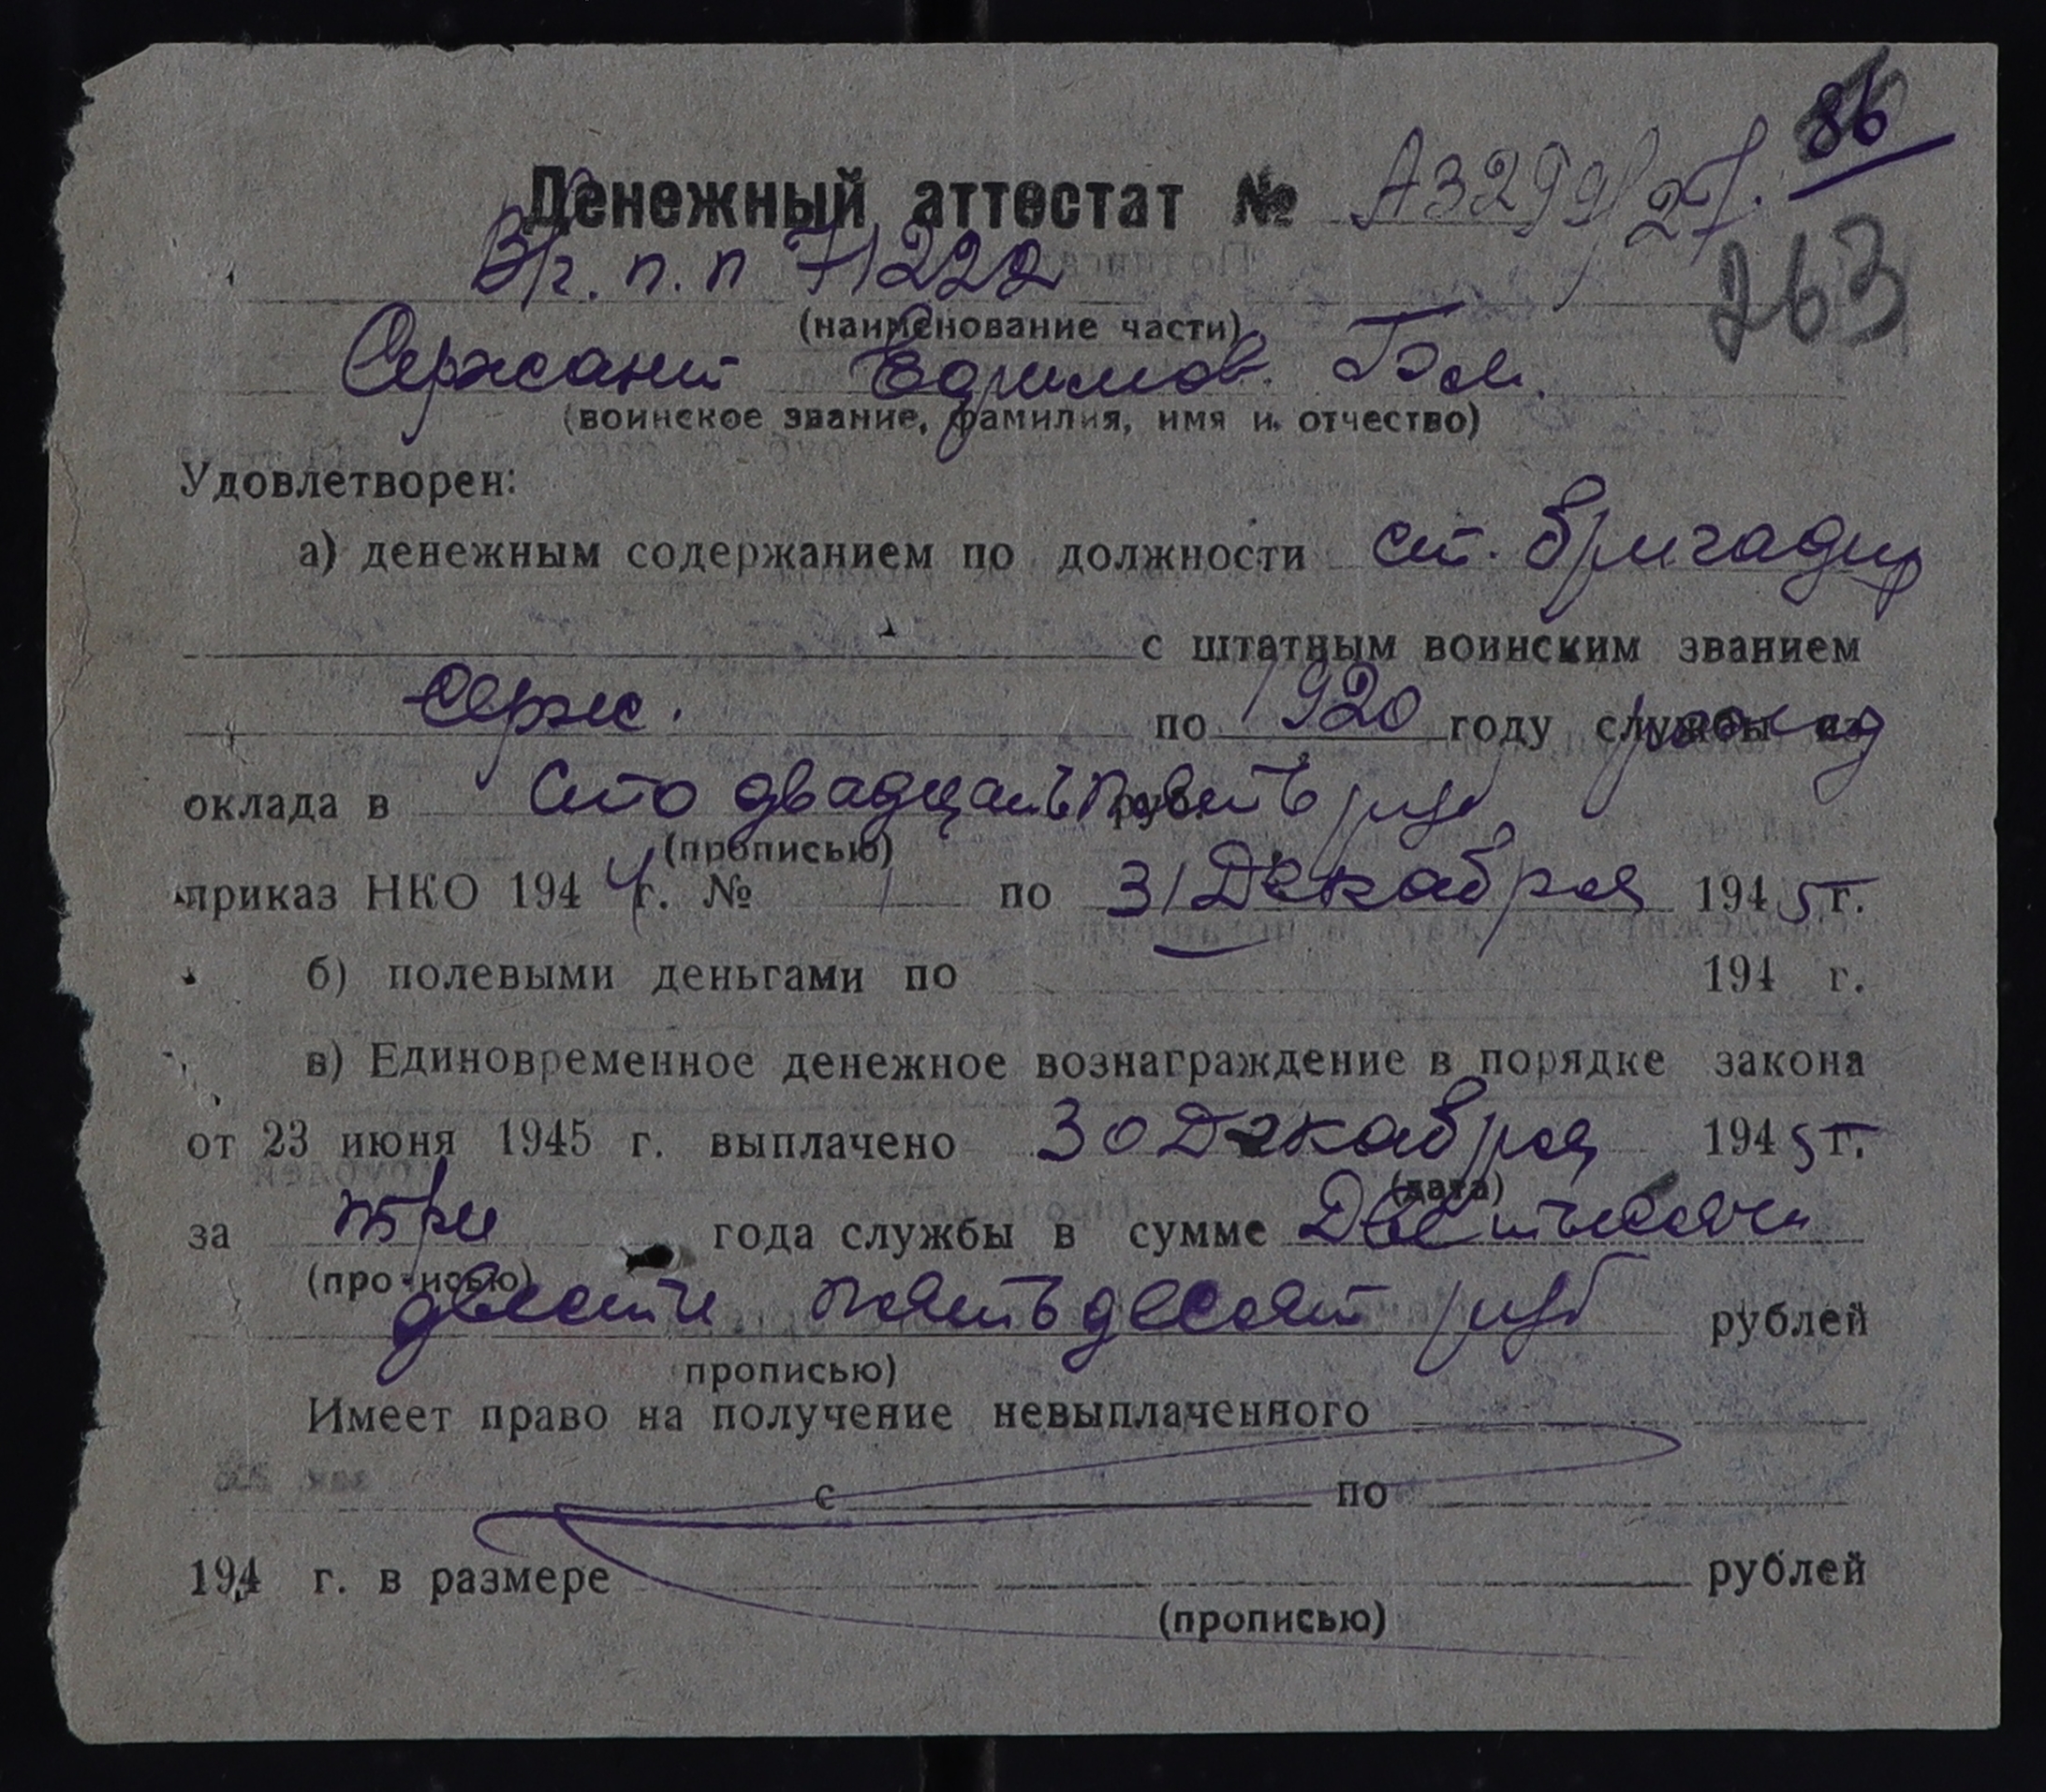 86
Денежный аттестат № А3299/27.
263
В/г. п.п 71222
(наименование части)
Сержант Ефимов.
(воинское звание, фамилия, имя и отчество)
Удовлетворен:
а) денежным содержанием по должности ст. бригадир
с штатным воинским званием
Серж. по 1920 году службы из
оклада в Сто двадцать руб. руб
(прописью)
приказ НКО 1944 г. № 1 по 31 Декабря 1945 г.
б) полевыми деньгами по 194 г.
в) Единовременное денежное вознаграждение в порядке закона
от 23 июня 1945 г. выплачено 30 Декабря 1945 г.
(дата)
за три года службы в сумме Две тысячи
(прописью)
двести пятьдесят руб рублей
прописью)
Имеет право на получение невыплаченного
с по
194 г. в размере рублей
(прописью)